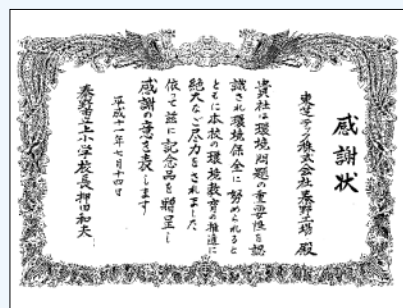 感謝状
東芝テック株式会社秦野工場 殿
貴社は環境問題の重要性を認
識され環境保全に努められると
ともに本校の環境教育の推進に
絶大なご尽力をされました
依って茲に記念品を贈呈し
感謝の意を表します
平成十一年七月十四日
秦野市立上小学校長 押田和夫